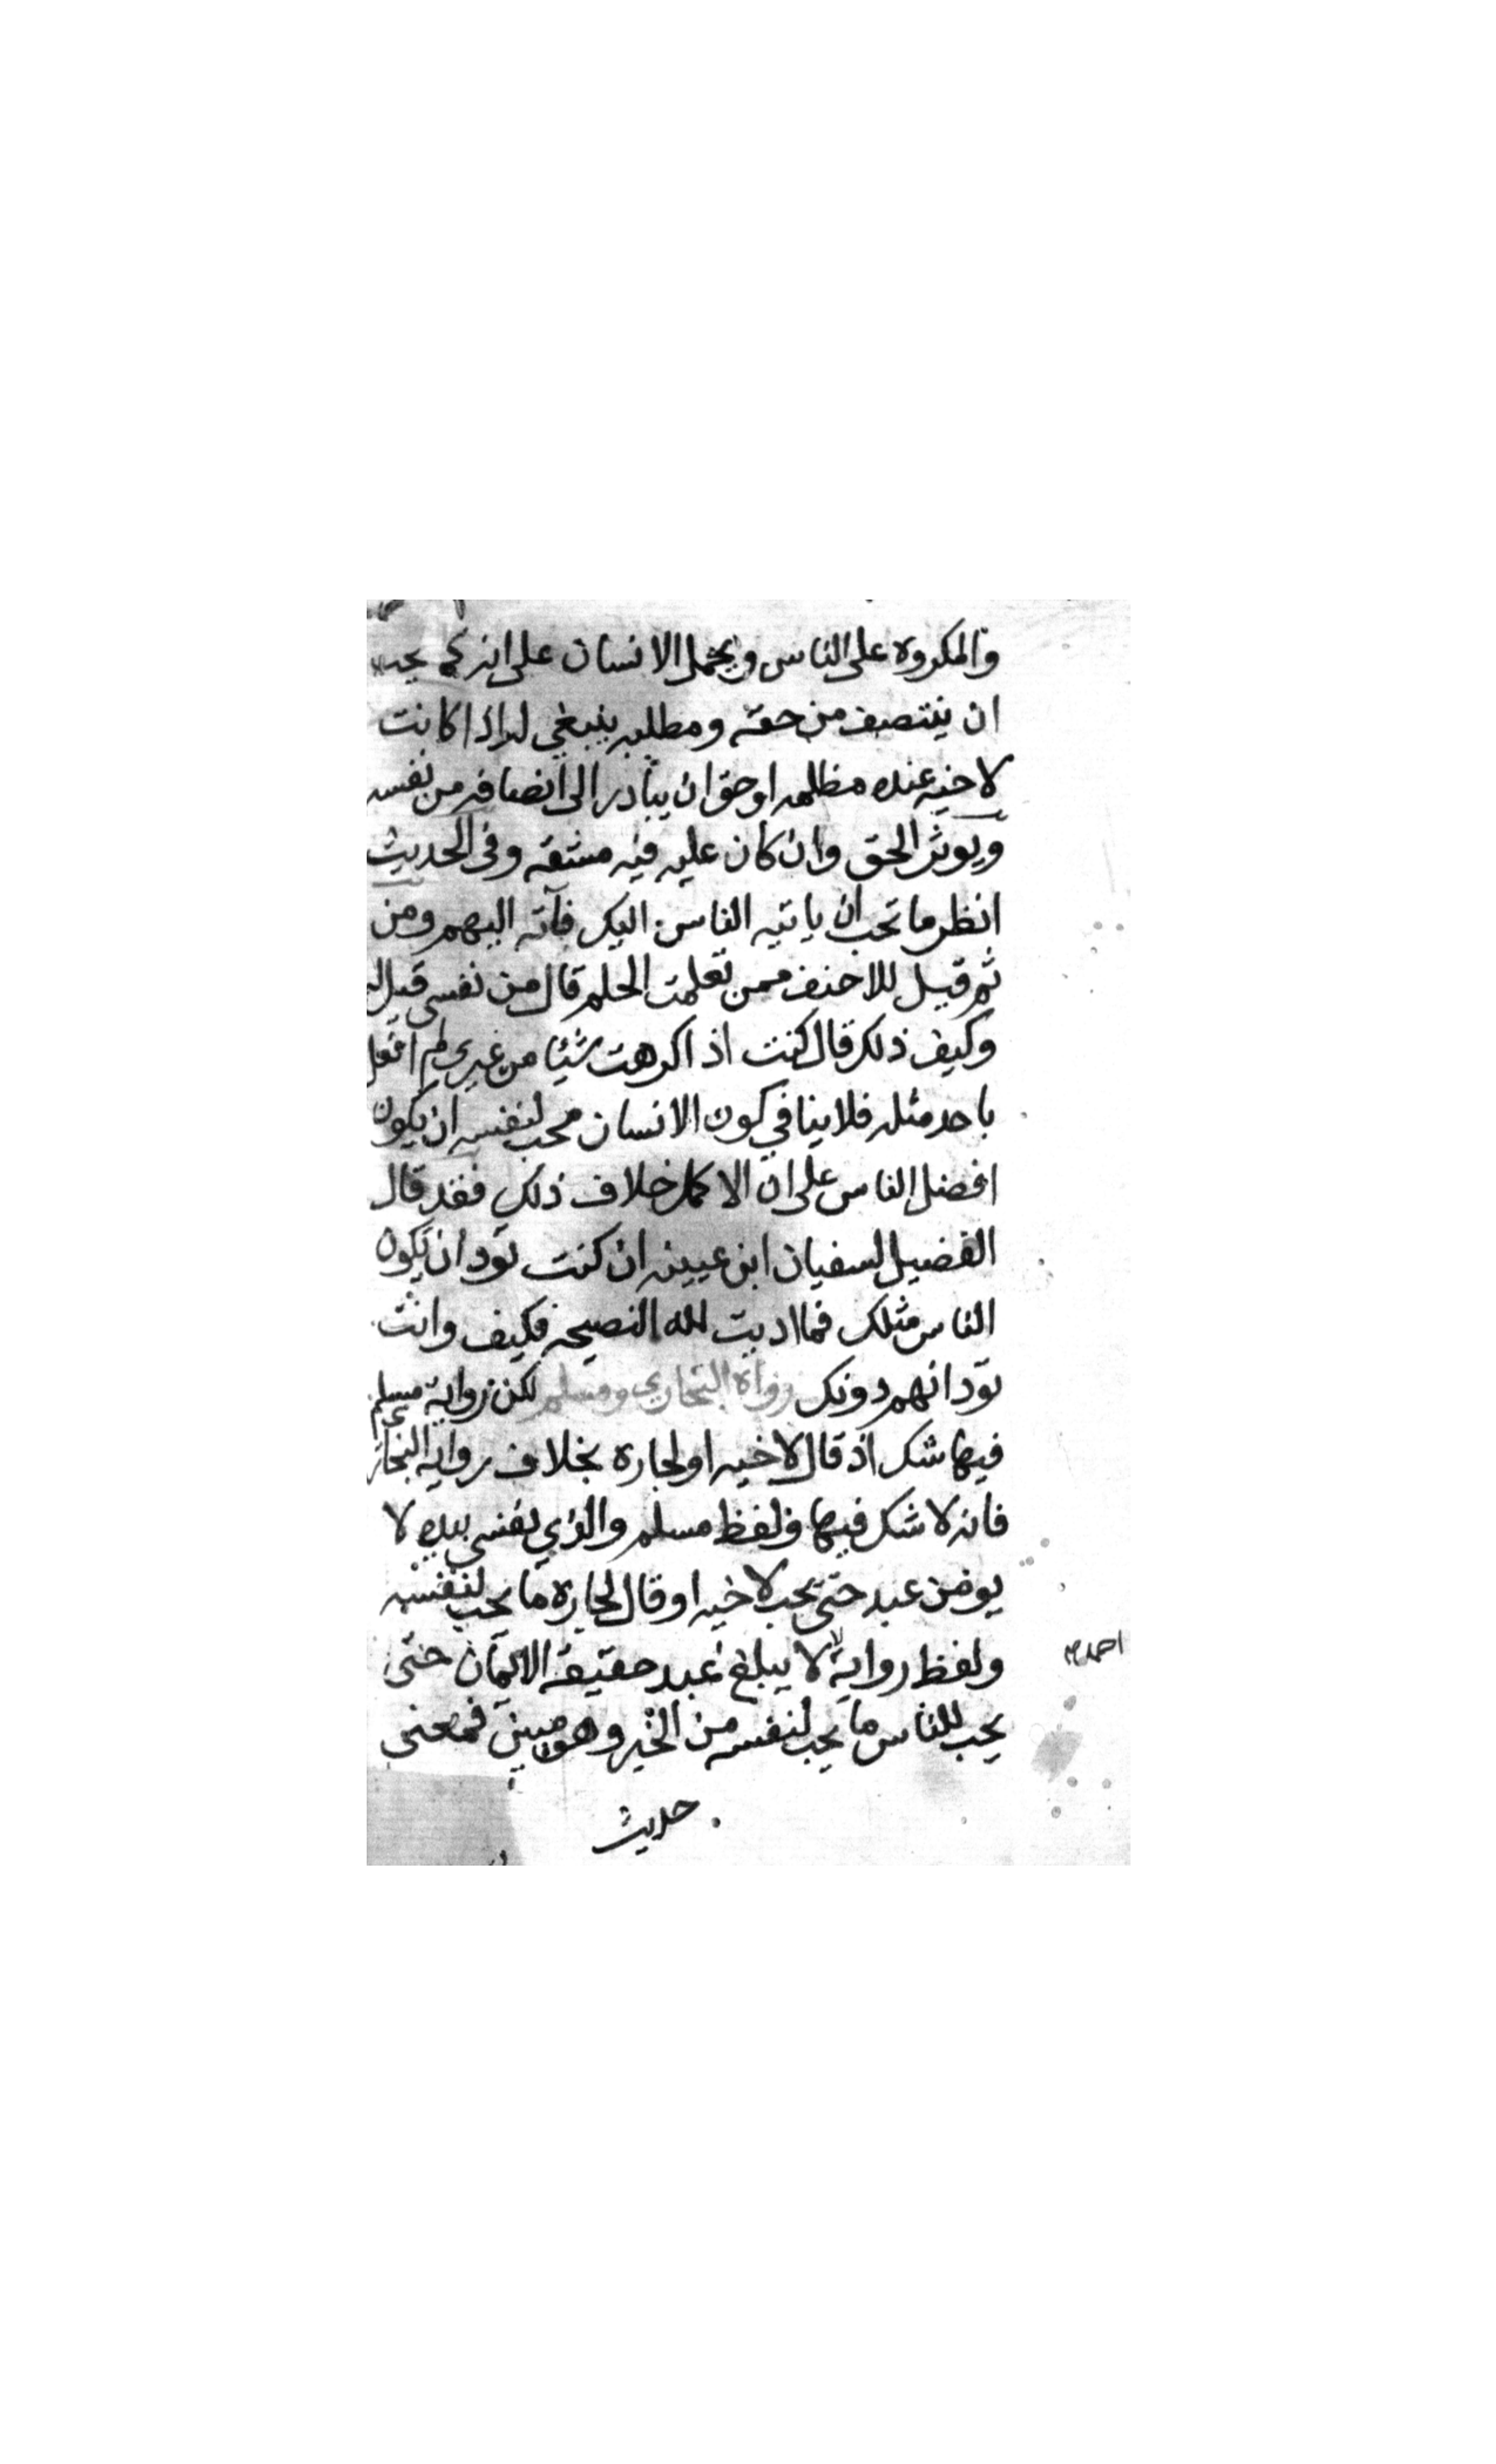 والمكروه على الناس ويحمل الانسان على انه كما يحب
ان ينتصف من حقه ومظلمه ينبغي له اذا كانت
لاخيه عنده مظلمه او حق ان يبادر الى انصافه من نفسه
ويوثر الحق وان كان عليه فيه مشقه وفي الحديث
انظر ما تحب ان ياتيه الناس اليك فآته اليهم ومن
ثم قيل للاحنف ممن تعلمت الحلم قال من نفسي قيل له
وكيف ذلك قال كنت اذا كرهت شيئا من غيري لم افعل
باحد مثله فلا ينافي كون الانسان محب لنفسه ان يكون
افضل الناس على ان الاكمل خلاف ذلك فقد قال
الفضيل لسفيان ابن عيينه ان كنت تود ان تكون
الناس مثلك فما اديت لله النصيحه فكيف وانت
تود انهم دونك رواه البخاري ومسلم لكن رواية مسلم
فيها شك اذ قال لاخيه او لجاره بخلاف رواية البخاري
فانه لا شك فيها ولفظ مسلم والذي نفسي بيده لا
يومن عبد حتى يحب لاخيه او قال لجاره ما يحب لنفسه
ولفظ رواية لا يبلغ عبد حقيقة الايمان حتى
احمد
يحب للناس ما يحب لنفسه من الخير وهو مبين فمعنى
حديث